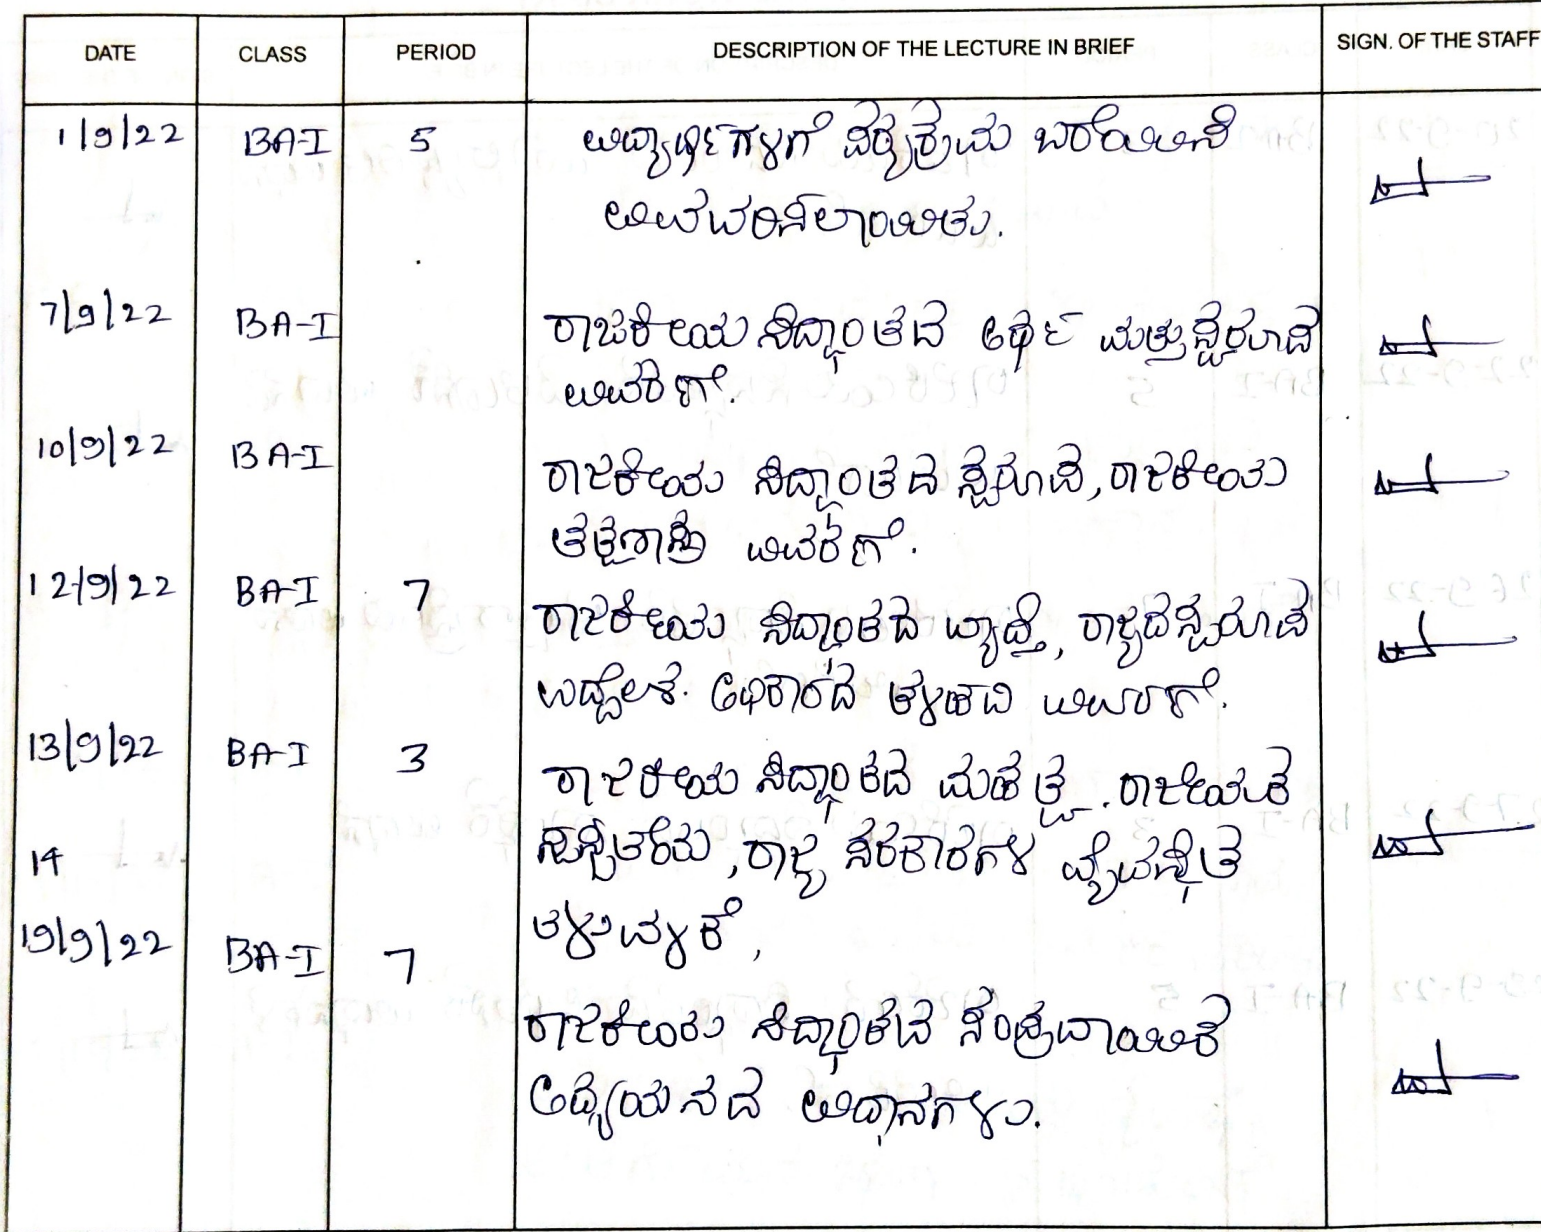 DATE CLASS PERIOD DESCRIPTION OF THE LECTURE IN BRIEF SIGN. OF THE STAFF
1/9/22 BA-I 5 ವಿದ್ಯಾರ್ಥಿಗಳಿಗೆ ಪಠ್ಯಕ್ರಮ ಬರೆಯಿಸಿ
ವಿವವರಿಸಲಾಯಿತು.
7/9/22 BA-I ರಾಜಕೀಯ ಸಿದ್ಧಾಂತದ ಅರ್ಥ ಮತ್ತು ಸ್ವರೂಪ
ವಿವರಣೆ.
10/9/22 BA-I ರಾಜಕೀಯ ಸಿದ್ಧಾಂತದ ಸ್ವರೂಪ, ರಾಜಕೀಯ
ತತ್ವಶಾಸ್ತ್ರ ವಿವರಣೆ.
12/9/22 BA-I 7 ರಾಜಕೀಯ ಸಿದ್ಧಾಂತದ ವ್ಯಾಪ್ತಿ, ರಾಜ್ಯದ ಸ್ವರೂಪ
ಉದ್ದೇಶ. ಅಧಿಕಾರದ ವಿವರಣೆ.
13/9/22 BA-I 3 ರಾಜಕೀಯ ಸಿದ್ಧಾಂತದ ಮಹತ್ವ.
14 ರಾಜ್ಯ ಸರಕಾರಗಳ ವ್ಯವಸ್ಥಿತ
ತಿಳಿವಳಿಕೆ,
19/9/22 BA-I 7
ರಾಜಕೀಯ ಸಿದ್ಧಾಂತದ ಸಂಪ್ರದಾಯಿಕ
ಅಧ್ಯಯನದ ವಿಧಾನಗಳು.